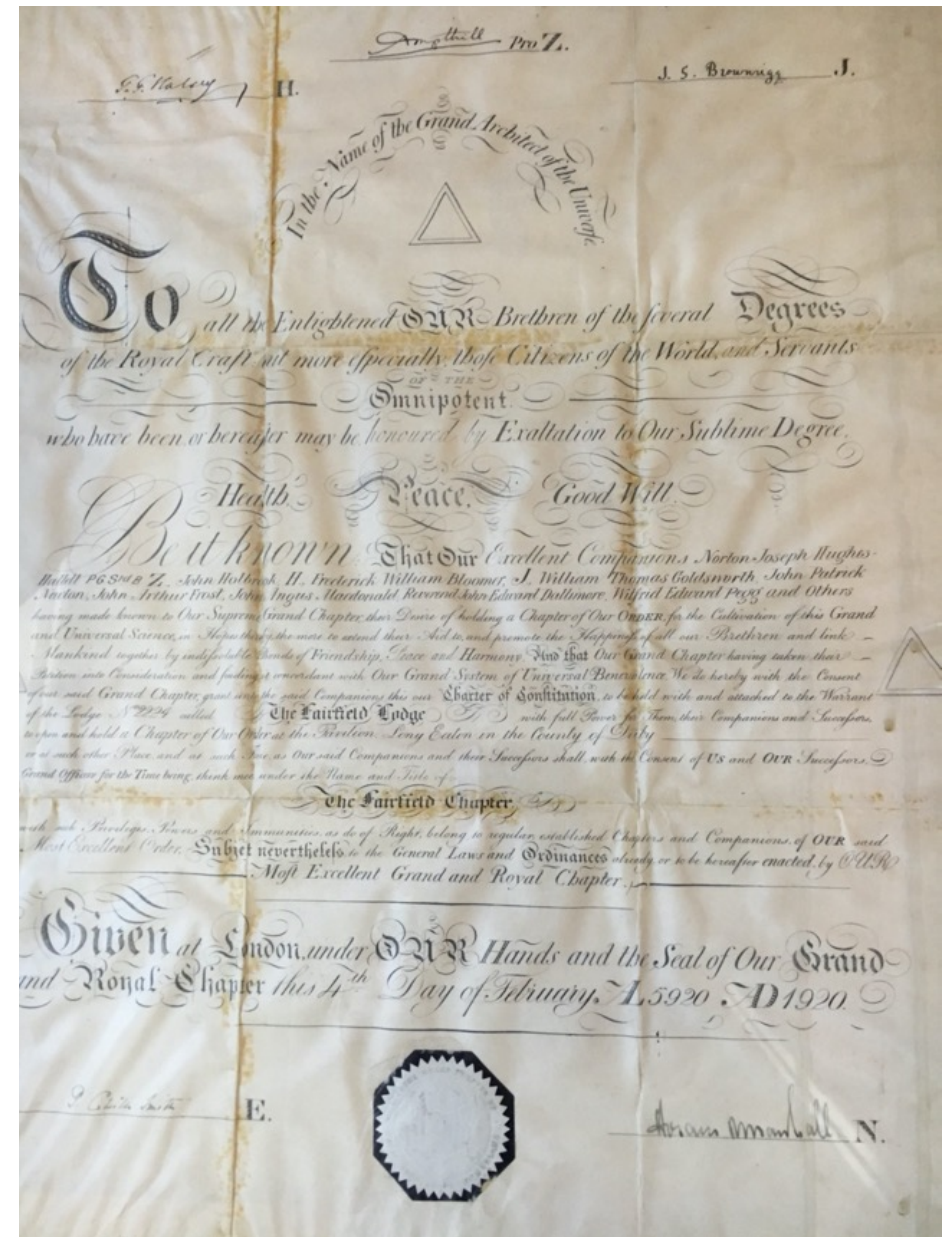 Ampthill Pro Z.
T. F. Halsey H.
J. S. Brownrigg J.
In the Name of the Grand Architect of the Universe
To all the Enlightened OUR Brethren of the several Degrees
of the Royal Craft but more especially those Citizens of the World, and Servants
OF THE
Omnipotent.
who have been, or hereafter may be honoured by Exaltation to Our Sublime Degree.
Health. Peace. Good Will.
Be it known That Our Excellent Companions Norton Joseph Hughes-
Hallett P G Swd B Z. John Holbrook H. Frederick William Bloomer, J. William Thomas Goldsworth, John Patrick
Norton, John Arthur Frost, John Angus Macdonald Reverend John Edward Dallimore, Wilfrid Edward Pegg and Others
having made known to Our Supreme Grand Chapter, their Desire of holding a Chapter of Our ORDER, for the Cultivation of this Grand
and Universal Science, in Hopes thereby the more to extend their Aid to, and promote the Happiness of all our Brethren and link
Mankind together by indissoluble Bonds of Friendship, Peace and Harmony. And that Our Grand Chapter having taken their
Petition into Consideration and finding it concordant with Our Grand System of Universal Benevolence. We do hereby with the Consent
of our said Grand Chapter, grant unto the said Companions this our Charter of Constitution, to be held with and attached to the Warrant
of the Lodge No 2224 called The Fairfield Lodge with full Power for Them, their Companions and Successors,
to open and hold a Chapter of Our Order at the Pavilion Long Eaton in the County of Derby
or at such other Place and at such Time as Our said Companions and their Successors shall, with the Consent of US and OUR Successors,
Grand Officers for the Time being, think meet under the Name and Title of
The Fairfield Chapter
with such Privileges, Powers and Immunities, as do of Right, belong to regular, established Chapters and Companions, of OUR said
Most Excellent Order. Subjet nevertheless to the General Laws and Ordinances already, or to be hereafter enacted, by OUR
Most Excellent Grand and Royal Chapter.
Given at London, under OUR Hands and the Seal of Our Grand
and Royal Chapter this 4th Day of February. AL 5920 AD 1920.
P Colville Smith E.
Horace Marshall N.